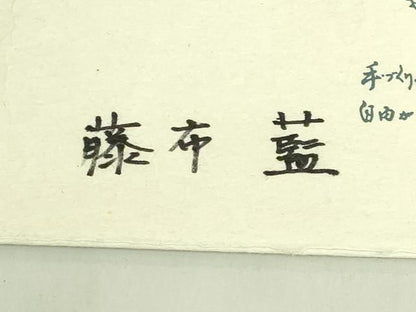 手づくり
自由が
藤布 藍